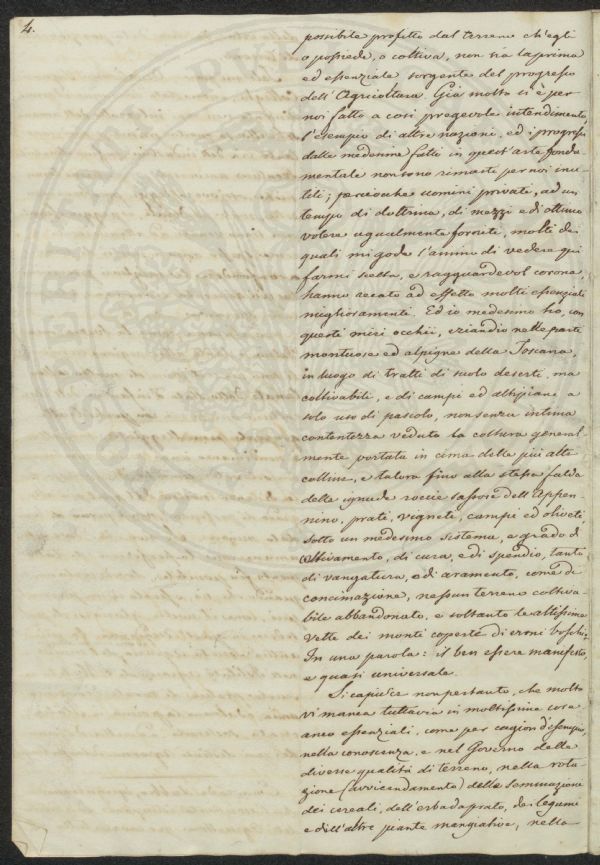 4.
possibile profitto dal terreno ch'egli
o possiede, o coltiva, non sia la prima
ed essenziale sorgente del progresso
dell'Agricoltura. Già molto si è per
noi fatto a così pregevole intendimento,
l'esempio di altre nazioni, ed i progressi
dalle medesime fatti in quest'arte fonda-
mentale non sono rimasti per noi inu-
tili; perciocché uomini privati, ad un
tempo di dottrina, di mezzi e di ottimo
volere ugualmente forniti, molti de'
quali mi gode l'animo di vedere qui
farmi scelta, e ragguardevol corona,
hanno recato ad effetto molti essenziali
miglioramenti. Ed io medesimo ho, con
questi miei occhii, eziandio nelle parti
montuose ed alpigne della Toscana,
in luogo di tratti di suolo deserti, ma
coltivabili, e di campi ed altipiani a
solo uso di pascolo, non senza intima
contentezza veduto la coltura general-
mente portata in cima delle più alte
colline, e talora fino alla stessa falda
delle ignude roccie sassose dell'Appen-
nino, prati, vigneti, campi ed oliveti
sotto un medesimo sistema, e grado di
coltivamento, di cura, e di spendio, tanto
di vangatura, e di aramento, come di
concimazione, nessun terreno coltiva-
bile abbandonato, e soltanto le altissime
vette dei monti coperte di ermi boschi.
In una parola: il ben essere manifesto,
e quasi universale.
Si capisce nonpertanto, che molto
vi manca tuttavia in moltissime cose
anco essenziali, come per cagion d'esempio,
nella conoscenza, e nel Governo delle
diverse qualità di terreno, nella rota-
zione (avvicendamento) delle seminazione
dei cereali, dell'erba da prato, dei legumi
e dell'altre piante mangiative, nella